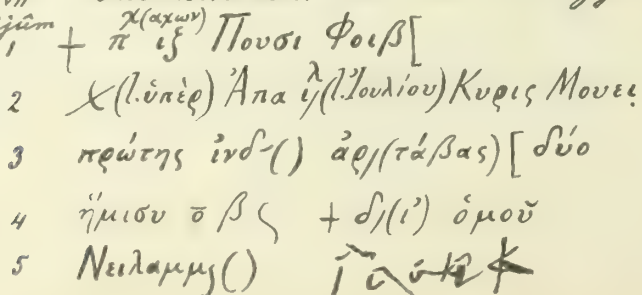 1 + π ιξ χ(αχων) Πουσι Φοιβ[
2 (l. ὑπὲρ) Ἀπα (l. Ἰουλίου) Κυρις Μουει
3 πρώτης ἰνδ () ἀρ/(τάβας) [ δύο
4 ἥμισυ ο β ς + δ/(ι') ὁμοῦ
5 Νειλαμμς ()